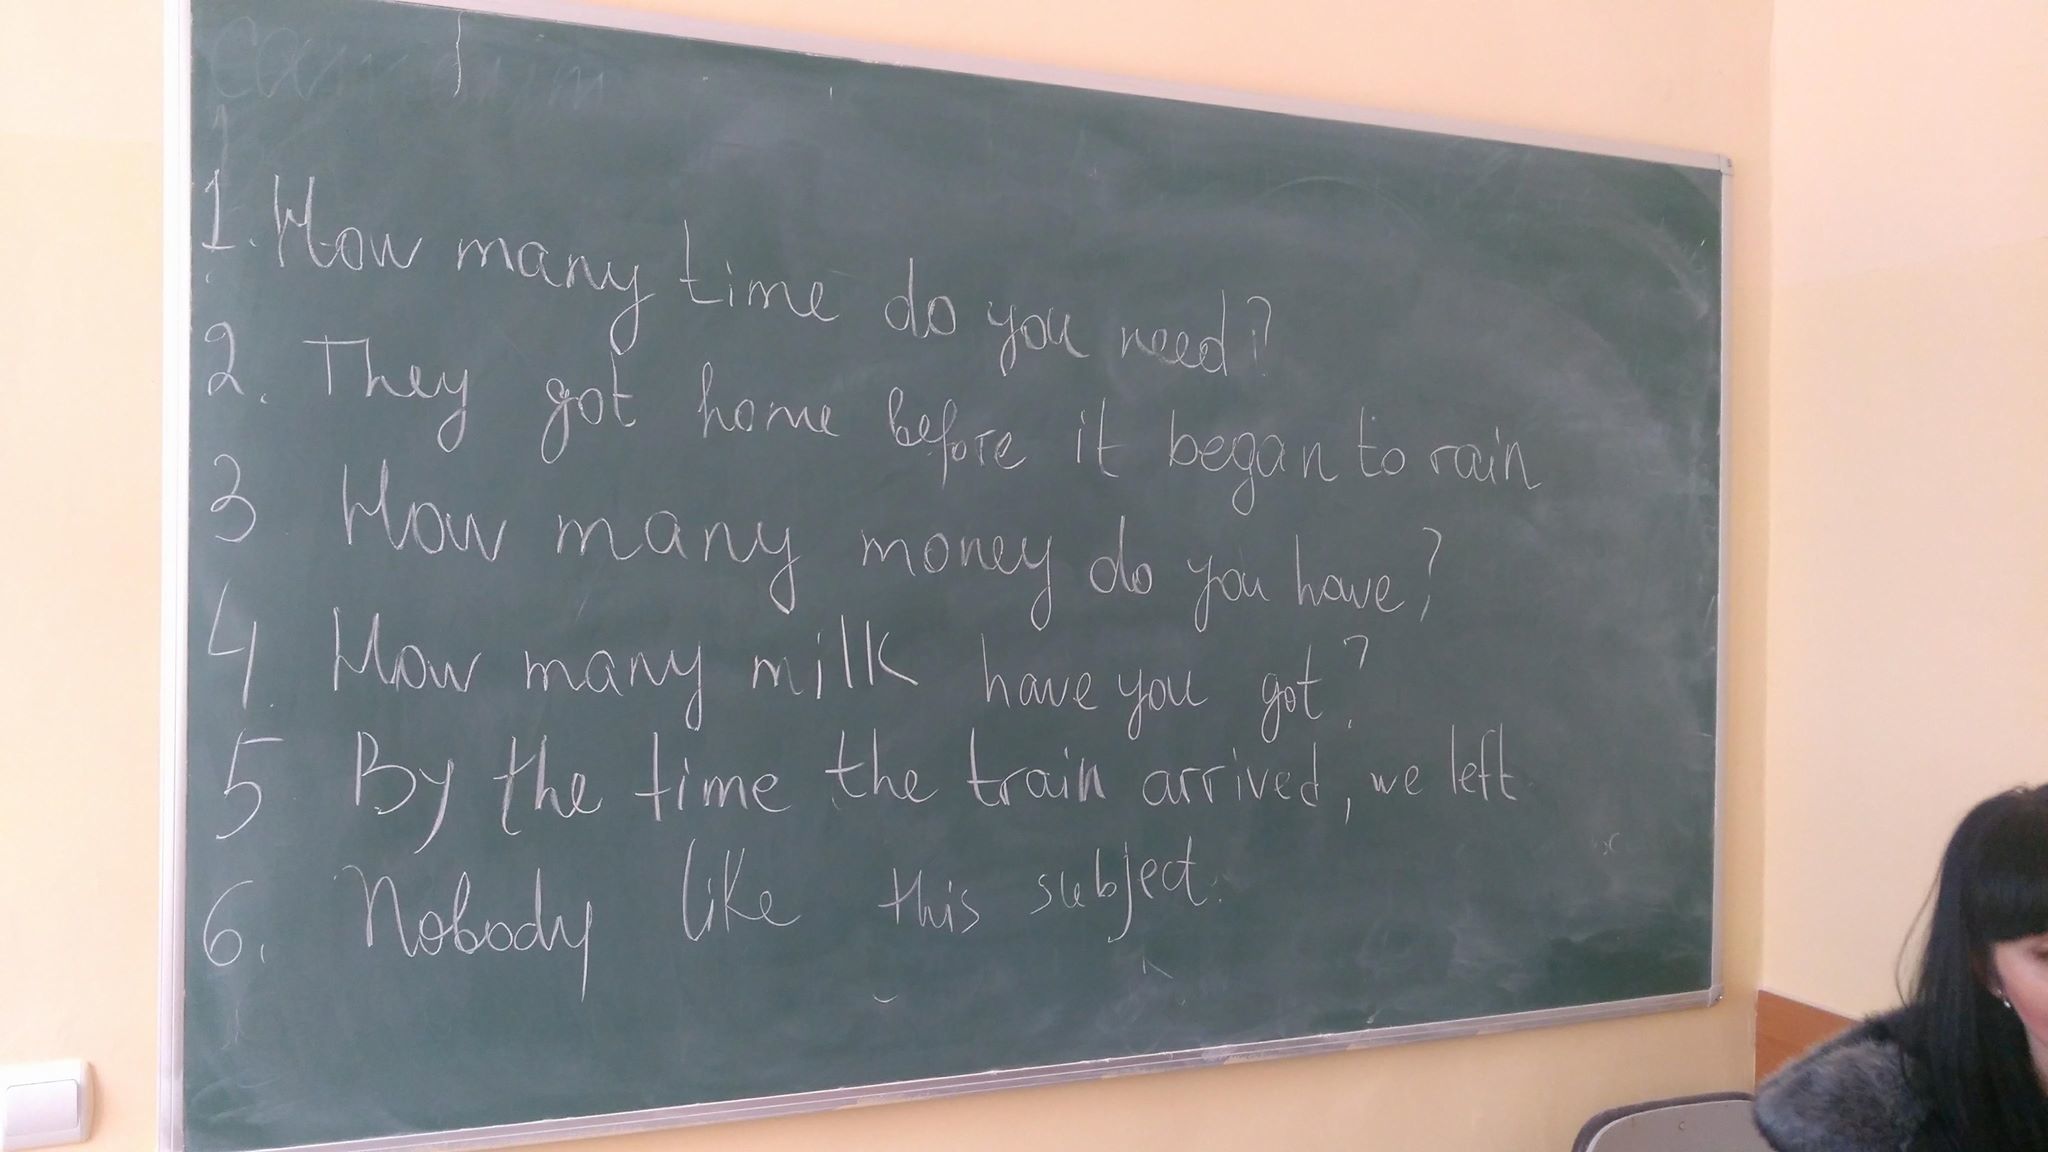 1. How many time do you need?
2. They got home before it began to rain
3 How many money do you have?
4. How many milk have you got?
5 By the time the train arrived, we left
6. Nobody like this subject.